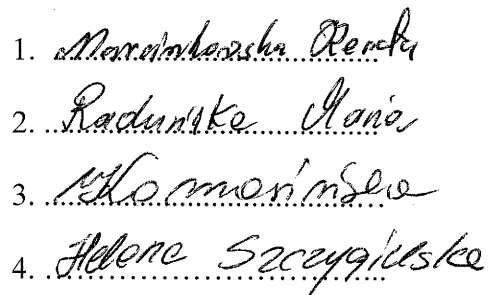 1. Marcinkowska Renata
2. Raduńska Maria
3. Komosińska
4. Helena Szczygielska